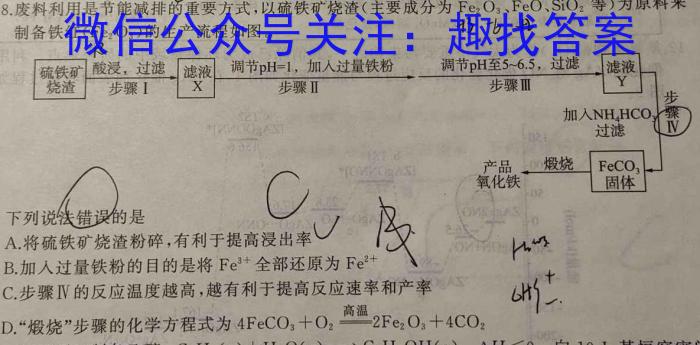 8.废料利用是节能减排的重要方式,以硫铁矿烧渣(主要成分为 Fe₂O₃、FeO、SiO₂ 等)为原料来
制备铁
微信公众号关注：趣找答案
硫铁矿烧渣
酸浸，过滤
步骤Ⅰ
滤液X
调节pH=1，加入过量铁粉
步骤Ⅱ
调节pH至5~6.5，过滤
步骤Ⅲ
滤液Y
步骤Ⅳ
加入NH₄HCO₃
过滤
FeCO₃固体
煅烧
产品
氧化铁
下列说法错误的是
A.将硫铁矿烧渣粉碎,有利于提高浸出率
B.加入过量铁粉的目的是将 Fe³⁺ 全部还原为 Fe²⁺
C.步骤Ⅳ的反应温度越高,越有利于提高反应速率和产率
D.“煅烧”步骤的化学方程式为 4FeCO₃+O₂ 高温══ 2Fe₂O₃+4CO₂